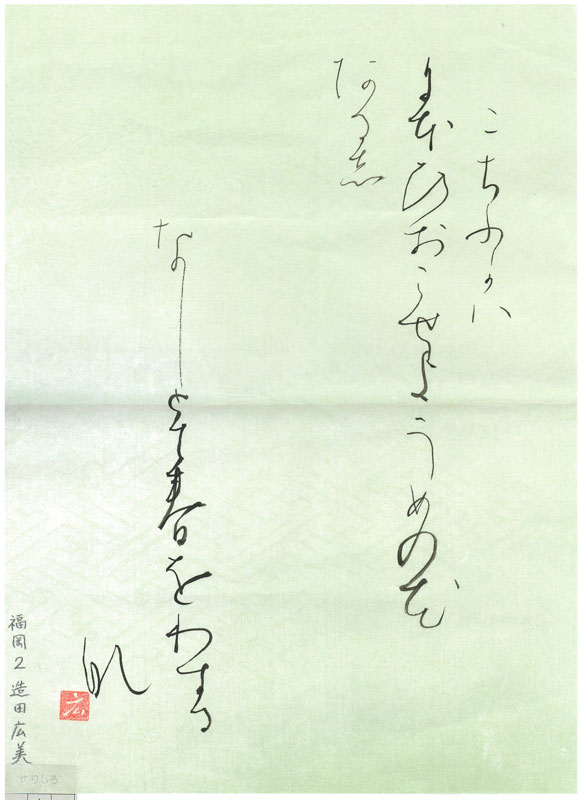 こちふかハ
にほひおこせようめの花
あるし
なしとて春をわする
那
広
福岡2 造田広美
のりしろ